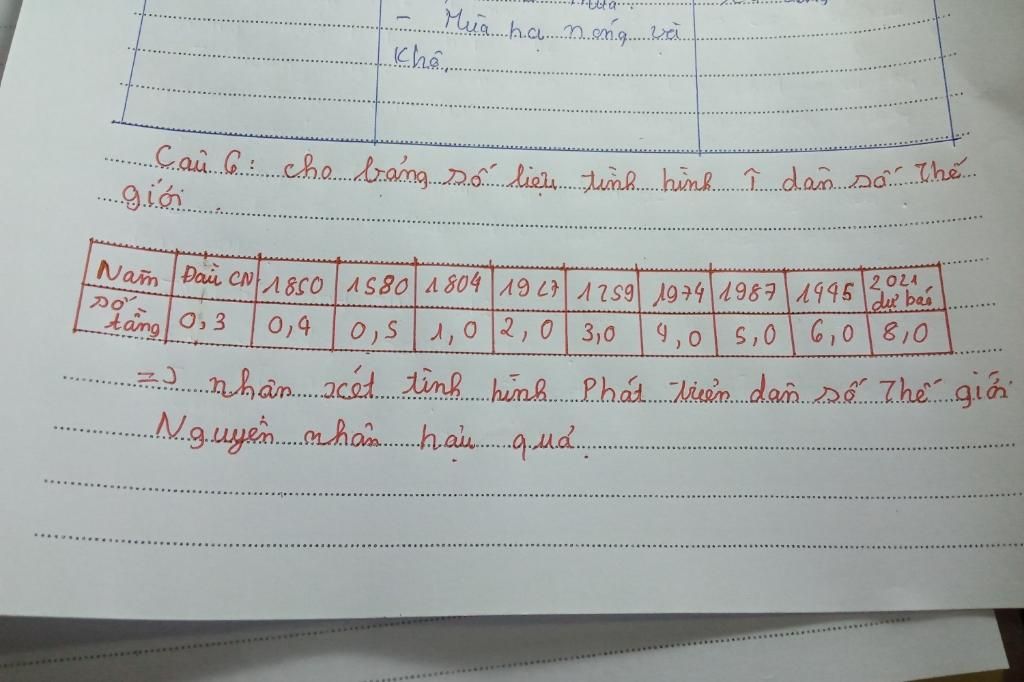 - Mùa hạ nóng và
khô.
Câu 6: cho bảng số liệu tình hình dân số thế
giới.
Năm Đầu CN 1850 1580 1804 1927 1259 1974 1987 1995 2021 dự báo
số tăng 0,3 0,4 0,5 1,0 2,0 3,0 4,0 5,0 6,0 8,0
=> nhận xét tình hình Phát triển dân số Thế giới
Nguyên nhân hậu quả.